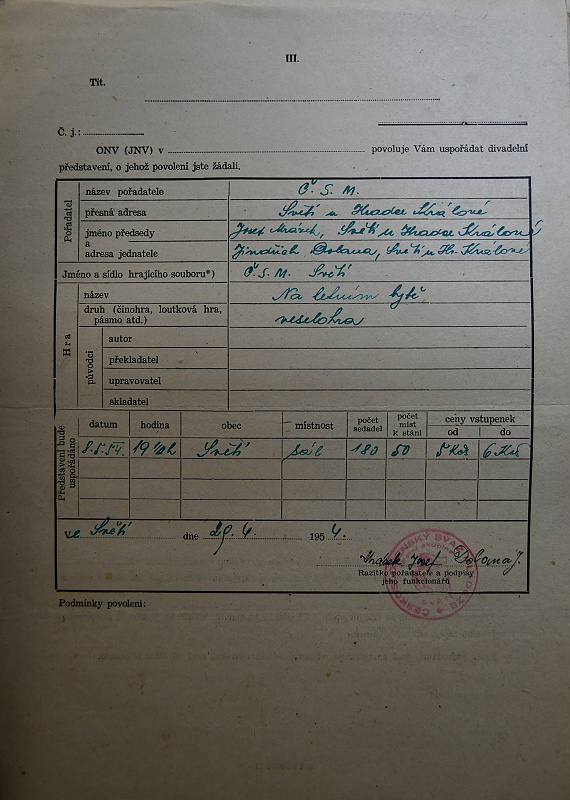 III.
Tit.
Č. j.:
ONV (JNV) v povoluje Vám uspořádat divadelní
představení, o jehož povolení jste žádali.
Pořadatel
název pořadatele Č. S. M.
přesná adresa Světí u Hradce Králové
jméno předsedy Josef Mrázek, Světí u Hradce Králové
a
adresa jednatele Jindřich Dobana, Světí u Hr. Králové
Jméno a sídlo hrajícího souboru*) Č. S. M. Světí
Hra
název Na letním bytě
druh (činohra, loutková hra,
pásmo atd.) veselohra
původci
autor
překladatel
upravovatel
skladatel
Představení bude uspořádáno
datum hodina obec místnost počet sedadel počet míst k stání ceny vstupenek
od do
8.5.54. 19 Světí sál 180 50 5 Kčs 6 Kčs
ve Světí dne 29. 4. 1954.
Josef Dobana J.
Razítko pořadatele a podpisy
jeho funkcionářů
Podmínky povolení: